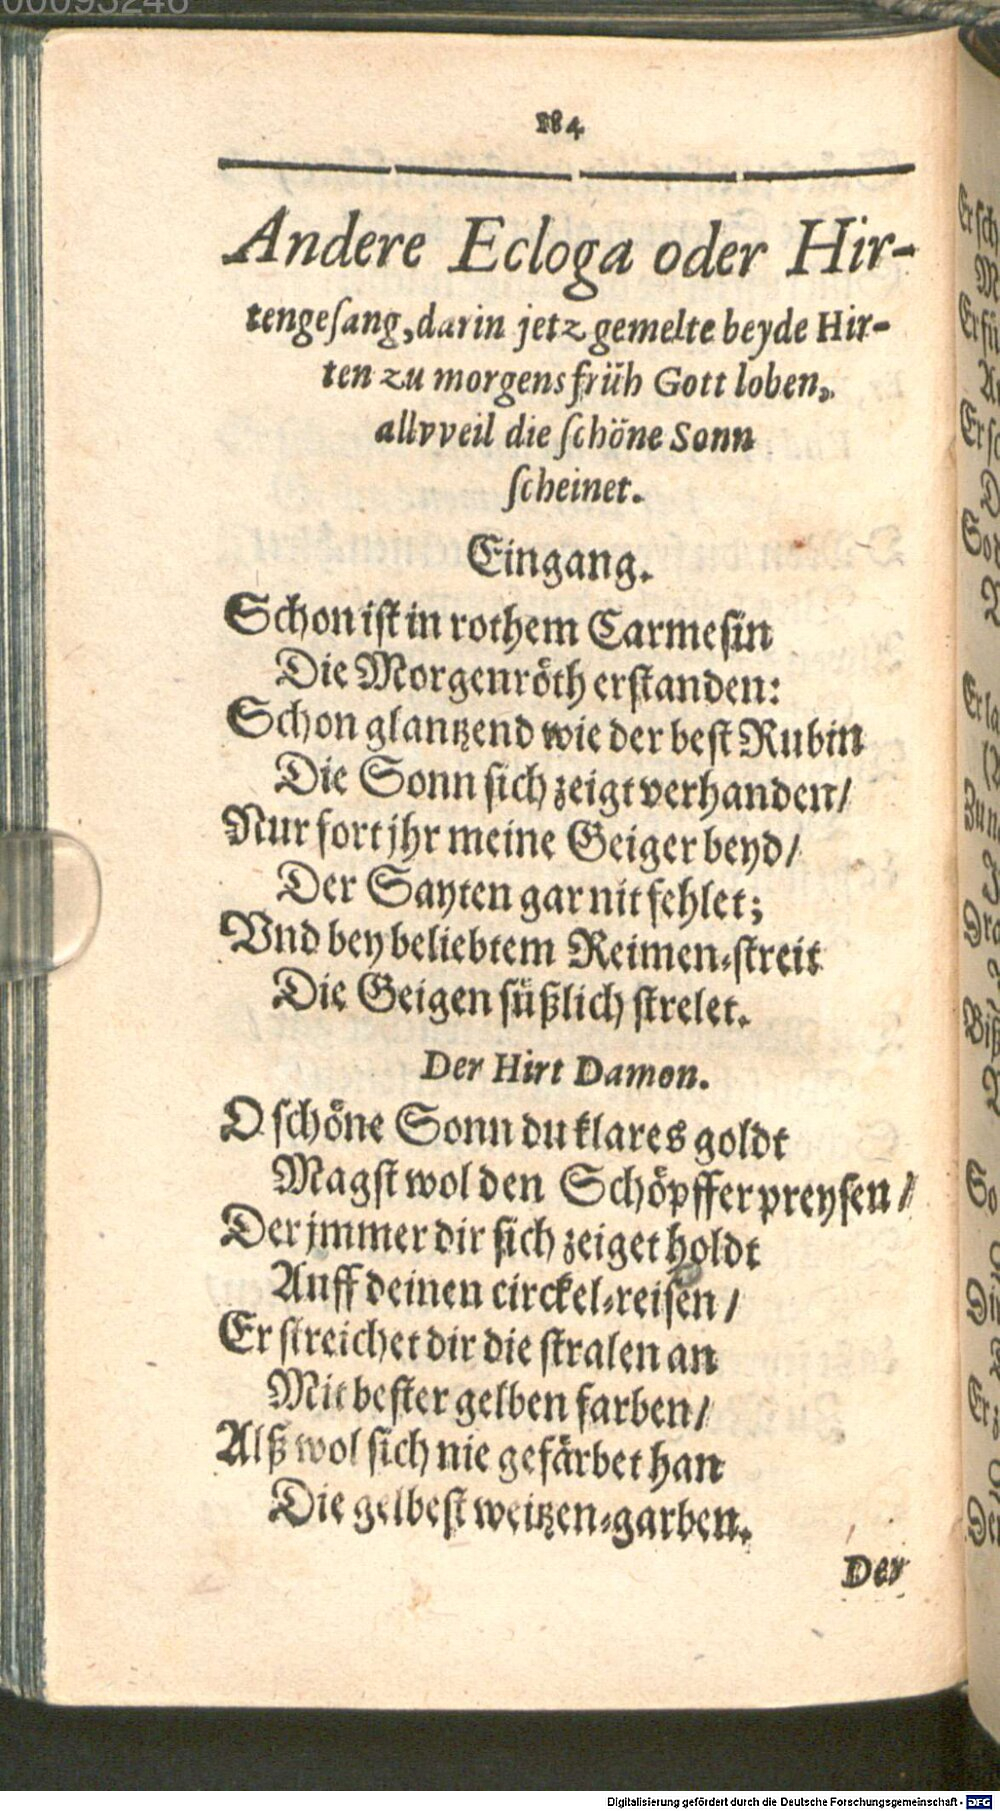 00095246
184
Andere Ecloga oder Hir-
tengeſang, darin jetz gemelte beyde Hir-
ten zu morgens früh Gott loben,
allvveil die ſchöne Sonn
ſcheinet.
Eingang.
Schon iſt in rothem Carmeſin
Die Morgenröth erſtanden:
Schon glantzend wie der beſt Rubin
Die Sonn ſich zeigt verhanden/
Nur fort jhr meine Geiger beyd/
Der Sayten gar nit fehlet;
Vnd bey beliebtem Reimen-ſtreit
Die Geigen ſüßlich ſtrelet.
Der Hirt Damon.
O ſchöne Sonn du klares goldt
Magſt wol den Schöpffer preyſen/
Der jmmer dir ſich zeiget holdt
Auff deinen circkel-reiſen/
Er ſtreichet dir die ſtralen an
Mit beſter gelben farben/
Alß wol ſich nie gefärbet han
Die gelbeſt weitzen-garben.
Der
Digitalisierung gefördert durch die Deutsche Forschungsgemeinschaft - DFG